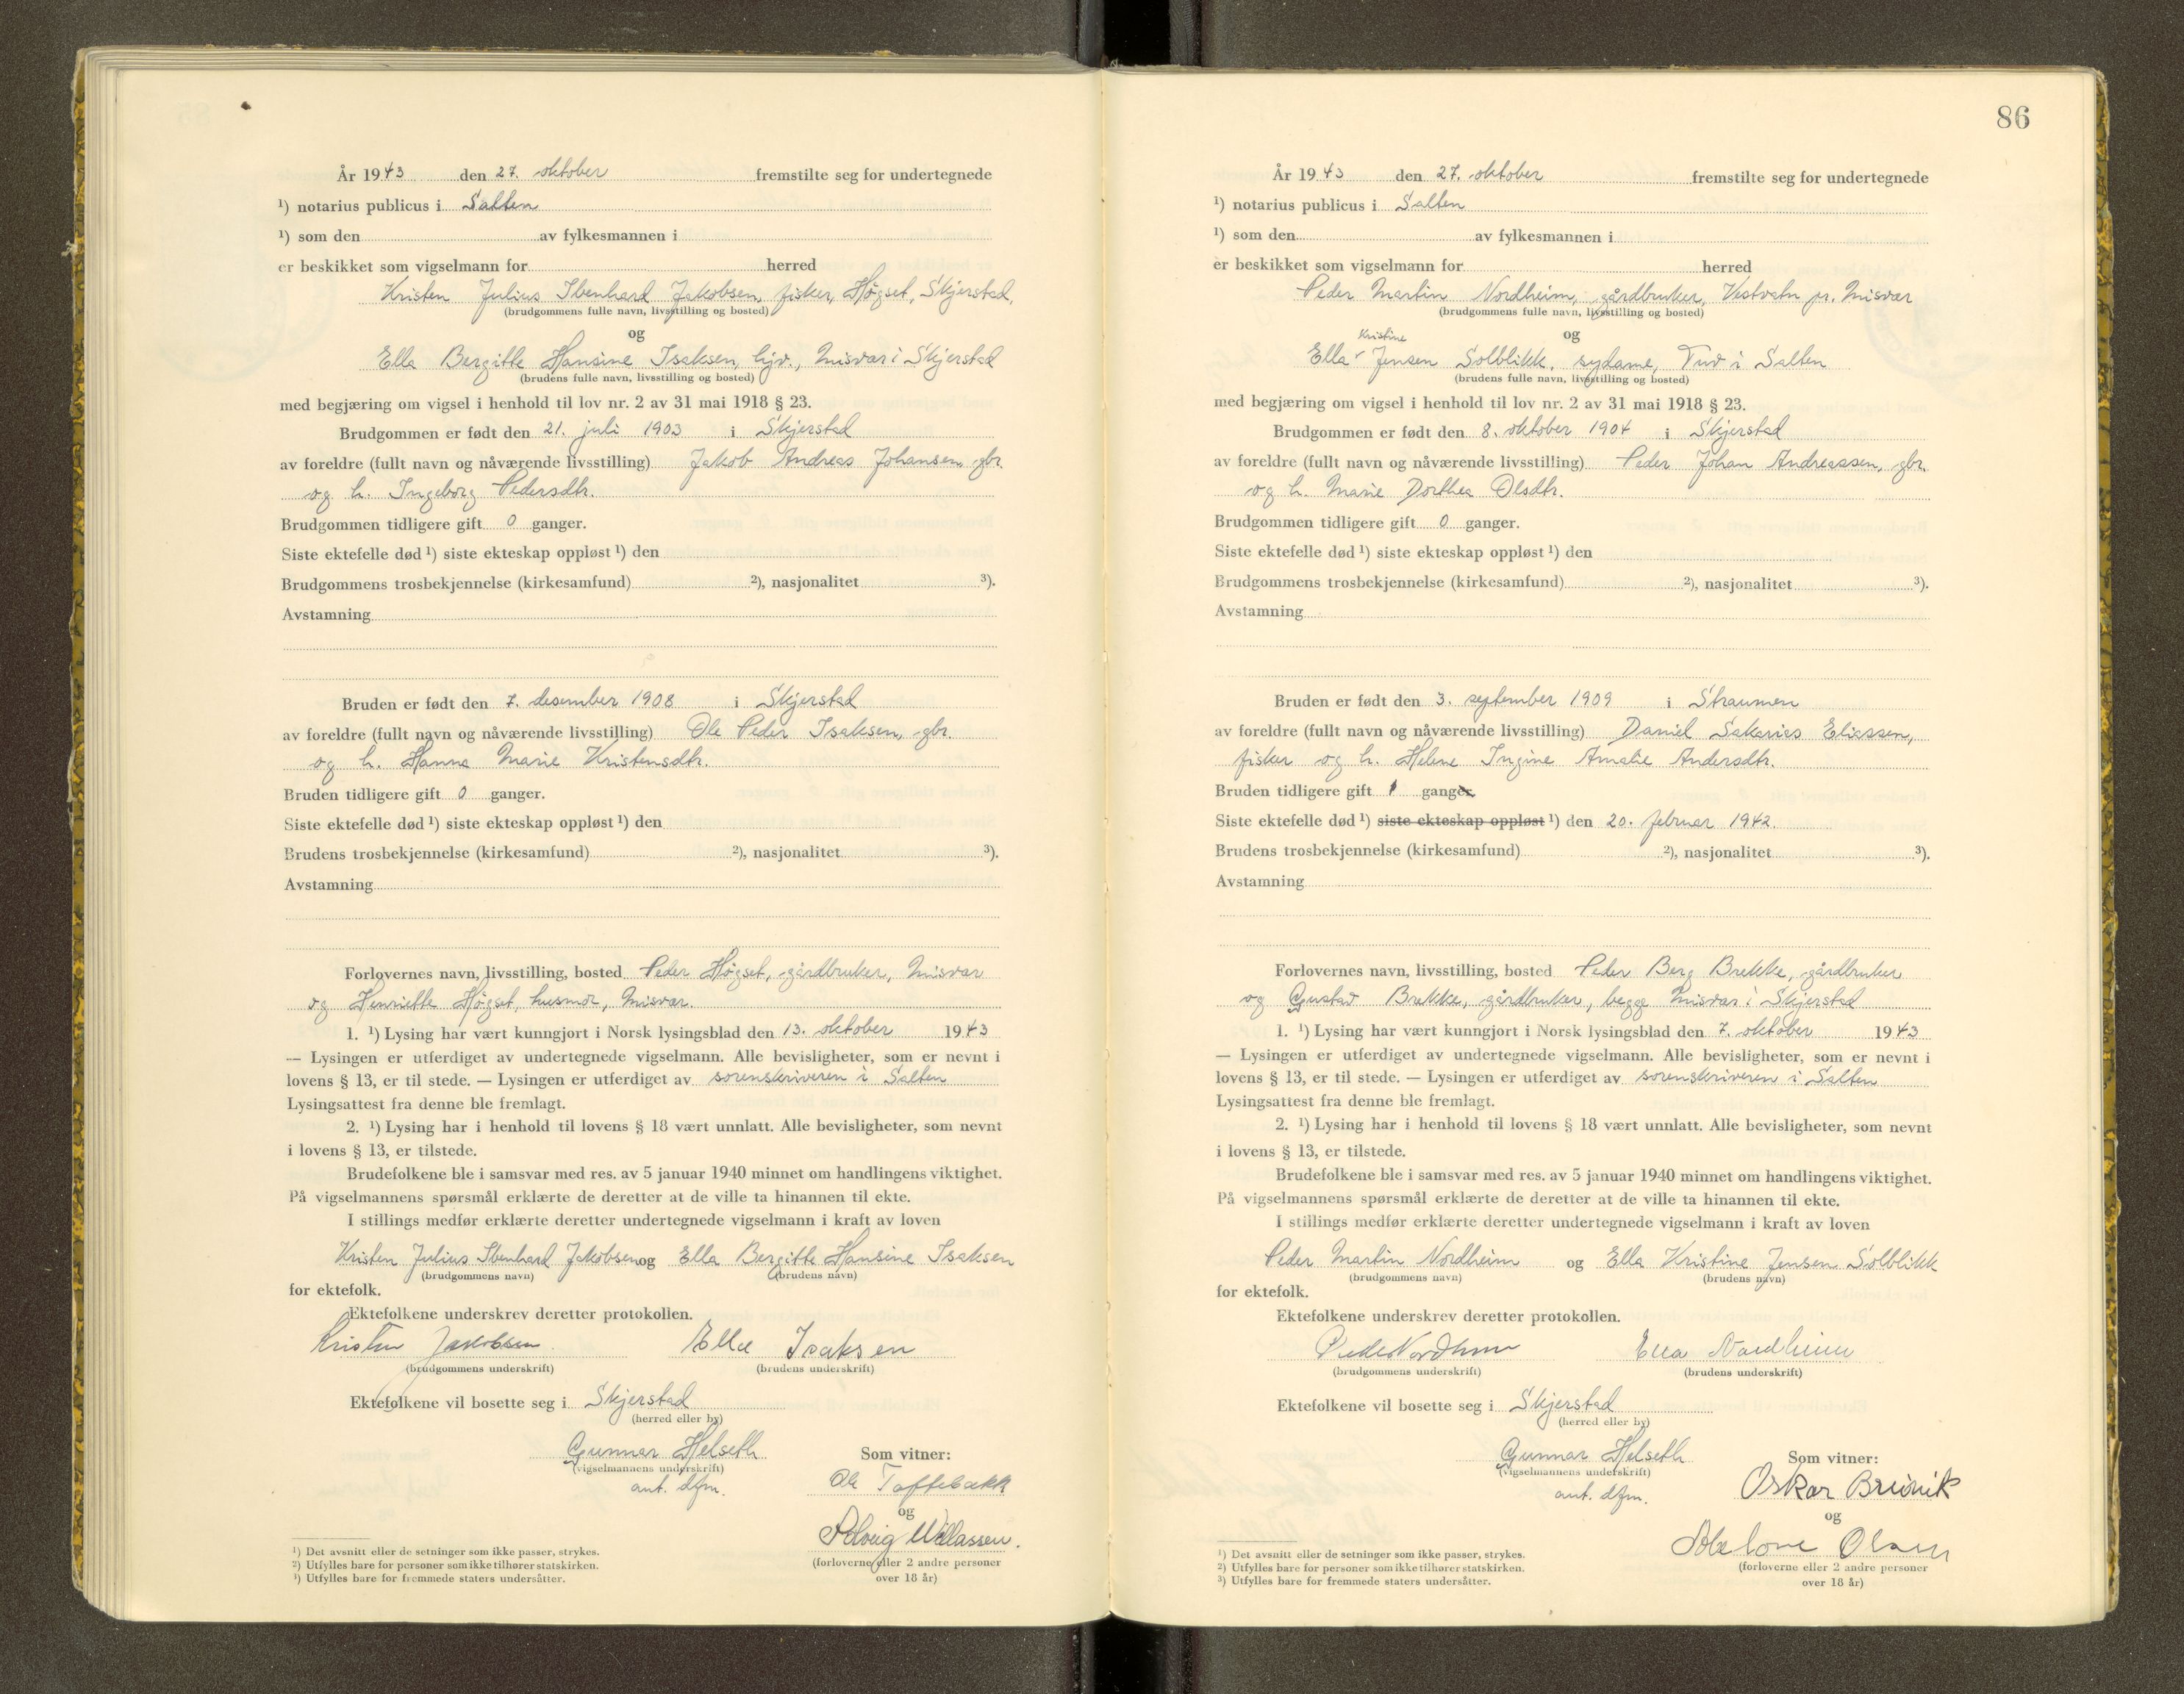 År 1943 den 27. oktober fremstilte seg for undertegnede
¹) notarius publicus i Salten
¹) som den av fylkesmannen i
er beskikket som vigselmann for herred
Kristen Julius Ibenhard Jakobsen, fisker, Høgset, Skjerstad,
(brudgommens fulle navn, livsstilling og bosted)
og
Ella Bergitte Hansine Isaksen, hjv., Misvær i Skjerstad
(brudens fulle navn, livsstilling og bosted)
med begjæring om vigsel i henhold til lov nr. 2 av 31 mai 1918 § 23.
Brudgommen er født den 21. juli 1903 i Skjerstad
av foreldre (fullt navn og nåværende livsstilling) Jakob Andreas Johansen, gbr.
og h. Ingeborg Pedersdtr.
Brudgommen tidligere gift 0 ganger.
Siste ektefelle død ¹) siste ekteskap oppløst ¹) den
Brudgommens trosbekjennelse (kirkesamfund) ²), nasjonalitet ³).
Avstamning
Bruden er født den 7. desember 1908 i Skjerstad
av foreldre (fullt navn og nåværende livsstilling) Ole Peder Isaksen, gbr.
og h. Hanna Marie Kristensdtr.
Bruden tidligere gift 0 ganger.
Siste ektefelle død ¹) siste ekteskap oppløst ¹) den
Brudens trosbekjennelse (kirkesamfund) ²), nasjonalitet ³).
Avstamning
Forlovernes navn, livsstilling, bosted Peder Høgset, gårdbruker, Misvær
og Henriette Høgset, husmor, Misvær.
1. ¹) Lysing har vært kunngjort i Norsk lysingsblad den 13. oktober 1943
— Lysingen er utferdiget av undertegnede vigselmann. Alle bevisligheter, som er nevnt i
lovens § 13, er til stede. — Lysingen er utferdiget av sorenskriveren i Salten
Lysingsattest fra denne ble fremlagt.
2. ¹) Lysing har i henhold til lovens § 18 vært unnlatt. Alle bevisligheter, som nevnt
i lovens § 13, er tilstede.
Brudefolkene ble i samsvar med res. av 5 januar 1940 minnet om handlingens viktighet.
På vigselmannens spørsmål erklærte de deretter at de ville ta hinannen til ekte.
I stillings medfør erklærte deretter undertegnede vigselmann i kraft av loven
Kristen Julius Ibenhard Jakobsen og Ella Bergitte Hansine Isaksen
(brudgommens navn) (brudens navn)
for ektefolk.
Ektefolkene underskrev deretter protokollen.
Kristen Jakobsen Ella Isaksen
(brudgommens underskrift) (brudens underskrift)
Ektefolkene vil bosette seg i Skjerstad
(herred eller by)
Gunnar Helseth Som vitner:
(vigselmannens underskrift)
aut. dfm.
Ole Toftebakk
og
Solveig Willassen.
(forloverne eller 2 andre personer
over 18 år)
¹) Det avsnitt eller de setninger som ikke passer, strykes.
²) Utfylles bare for personer som ikke tilhører statskirken.
³) Utfylles bare for fremmede staters undersåtter.
86
År 1943 den 27. oktober fremstilte seg for undertegnede
¹) notarius publicus i Salten
¹) som den av fylkesmannen i
er beskikket som vigselmann for herred
Peder Martin Nordheim, gårdbruker, Vestvatn pr. Misvær
(brudgommens fulle navn, livsstilling og bosted)
og
Kristine
Ella Jensen Solblikk, sydame, Tuv i Salten
(brudens fulle navn, livsstilling og bosted)
med begjæring om vigsel i henhold til lov nr. 2 av 31 mai 1918 § 23.
Brudgommen er født den 8. oktober 1904 i Skjerstad
av foreldre (fullt navn og nåværende livsstilling) Peder Johan Andreassen, gbr.
og h. Marie Dorthea Olsdtr.
Brudgommen tidligere gift 0 ganger.
Siste ektefelle død ¹) siste ekteskap oppløst ¹) den
Brudgommens trosbekjennelse (kirkesamfund) ²), nasjonalitet ³).
Avstamning
Bruden er født den 3. september 1909 i Straumen
av foreldre (fullt navn og nåværende livsstilling) Daniel Sakarias Eliassen,
fisker og h. Helene Ingine Amalie Andersdtr.
Bruden tidligere gift 1 ganger.
Siste ektefelle død ¹) siste ekteskap oppløst ¹) den 20. februar 1942.
Brudens trosbekjennelse (kirkesamfund) ²), nasjonalitet ³).
Avstamning
Forlovernes navn, livsstilling, bosted Peder Berg Brekke, gårdbruker
og Gustav Brekke, gårdbruker, begge Misvær i Skjerstad
1. ¹) Lysing har vært kunngjort i Norsk lysingsblad den 7. oktober 1943
— Lysingen er utferdiget av undertegnede vigselmann. Alle bevisligheter, som er nevnt i
lovens § 13, er til stede. — Lysingen er utferdiget av sorenskriveren i Salten
Lysingsattest fra denne ble fremlagt.
2. ¹) Lysing har i henhold til lovens § 18 vært unnlatt. Alle bevisligheter, som nevnt
i lovens § 13, er tilstede.
Brudefolkene ble i samsvar med res. av 5 januar 1940 minnet om handlingens viktighet.
På vigselmannens spørsmål erklærte de deretter at de ville ta hinannen til ekte.
I stillings medfør erklærte deretter undertegnede vigselmann i kraft av loven
Peder Martin Nordheim og Ella Kristine Jensen Solblikk
(brudgommens navn) (brudens navn)
for ektefolk.
Ektefolkene underskrev deretter protokollen.
Peder Nordheim Ella Nordheim
(brudgommens underskrift) (brudens underskrift)
Ektefolkene vil bosette seg i Skjerstad
(herred eller by)
Gunnar Helseth Som vitner:
(vigselmannens underskrift)
aut. dfm.
Oskar
og
Olsen
(forloverne eller 2 andre personer
over 18 år)
¹) Det avsnitt eller de setninger som ikke passer, strykes.
²) Utfylles bare for personer som ikke tilhører statskirken.
³) Utfylles bare for fremmede staters undersåtter.